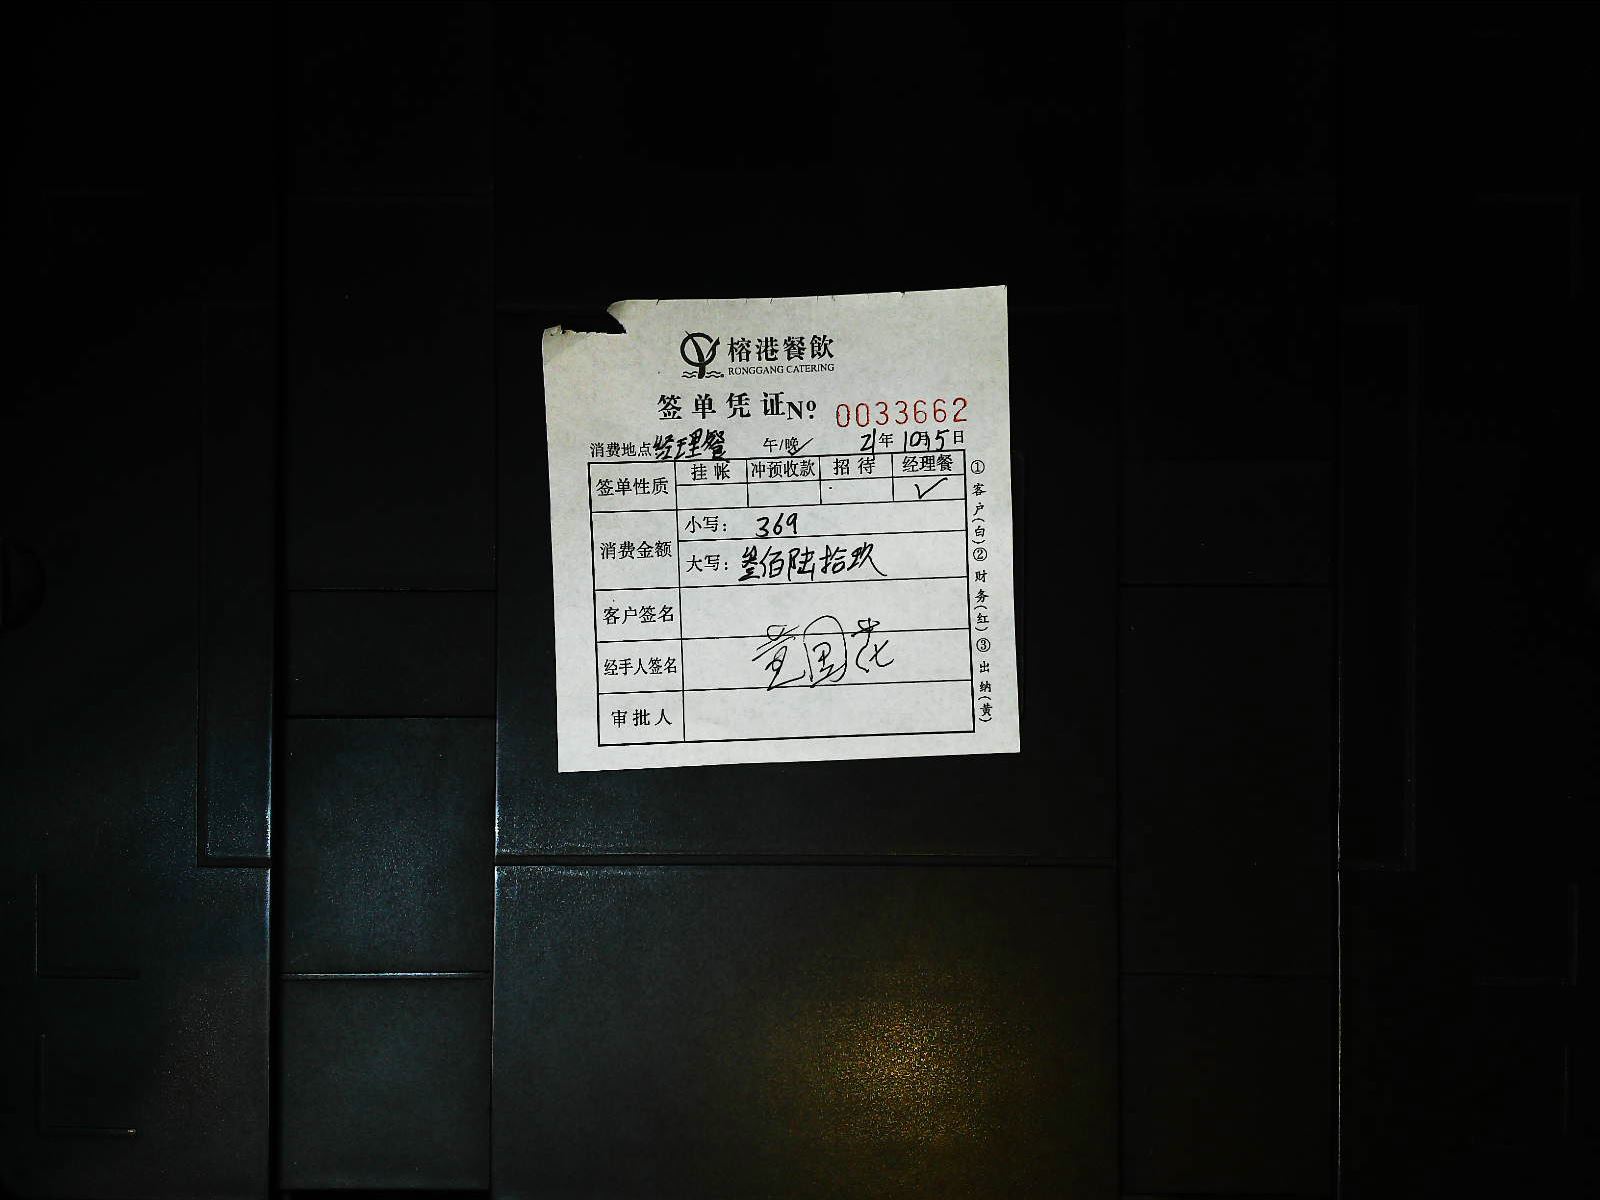 榕港餐飲
RONGGANG CATERING
签单凭证 Nº 0033662
消费地点 经理餐 午/晚✓ 21年10月5日
签单性质 挂帐 冲预收款 招待 经理餐
✓
消费金额 小写: 369
大写: 叁佰陆拾玖
客户签名
经手人签名 黄国花
审批人
①客户(白)②财务(红)③出纳(黄)